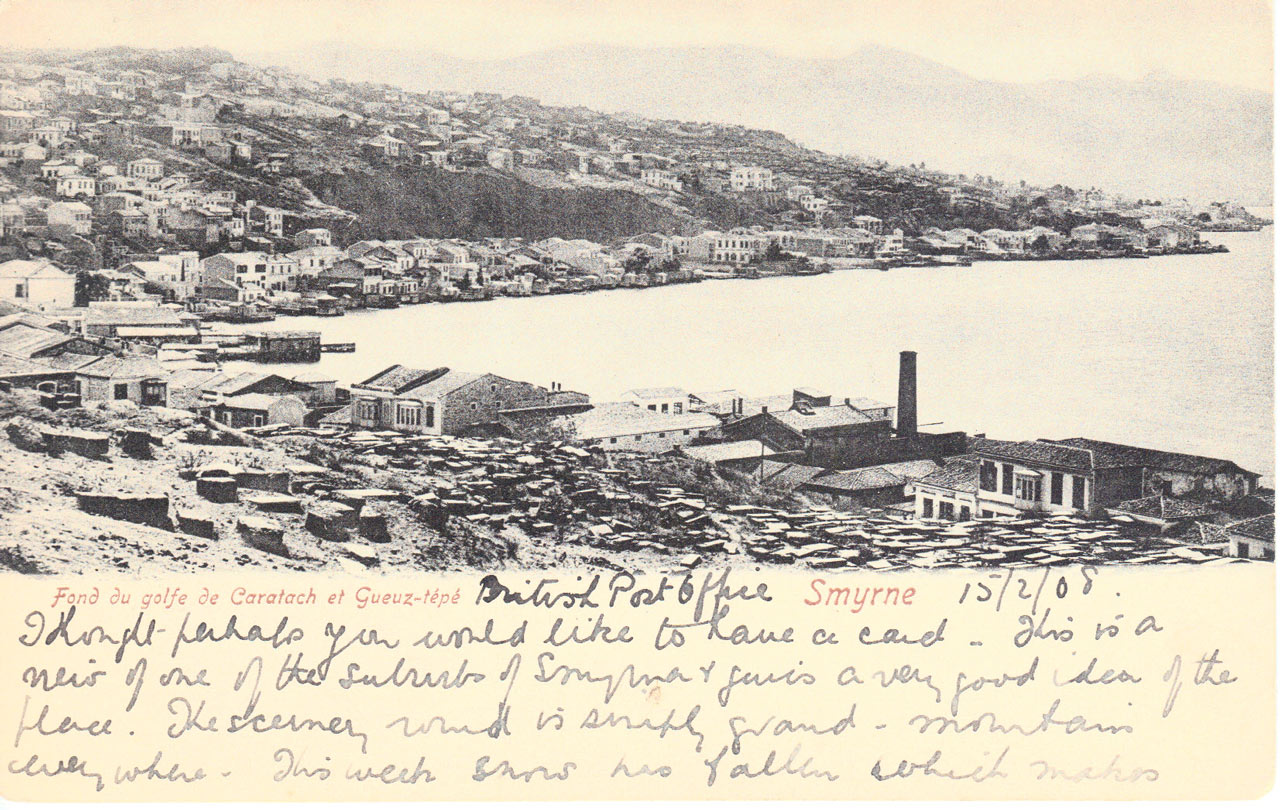 Fond du golfe de Caratach et Gueuz-tépé British Post Office Smyrne 15/2/08.
I thought perhaps you would like to have a card - This is a
view of one of the suburbs of Smyrna & gives a very good idea of the
place. The scenery round is simply grand - mountains
everywhere. This week snow has fallen which makes